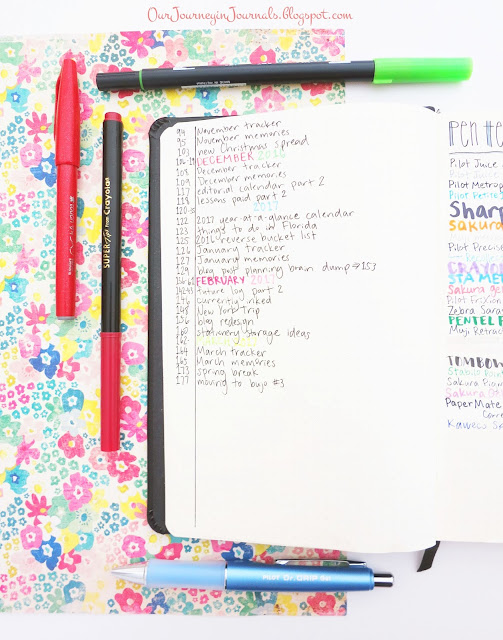 OurJourneyinJournals.blogspot.com
SUPERTIPS from Crayola
94 November tracker
95 November memories
103 new Christmas spread
DECEMBER 2016
108 December tracker
109 December memories
117 editorial calendar part 2
118 lessons paid part 2
120-
2017
122 2017 year-at-a-glance calendar
123 things to do in Florida
125 2016 reverse bucket list
126 January tracker
127 January memories
129 blog post planning brain dump → 153
FEBRUARY 2017
future log part 2
146 currently inked
148 New York Trip
156 blog redesign
160 stationery storage ideas
162-
164 March tracker
165 March memories
173 spring break
177 moving to bujo #3
PEN TE
Pilot Juice
Pilot Juice
Pilot Metrop
Pilot Petit
Sharp
Sakura
Pilot Precise
CRAYO
STAEDM
Sakura ge
Pilot Frixion
Zebra Saras
PENTEL
Muji Retrac
TOMBOW
Stabilo Point
Sakura Pigm
Sakura
PaperMate
Corre
Kaweco Sk
PILOT Dr. GRIP Gel